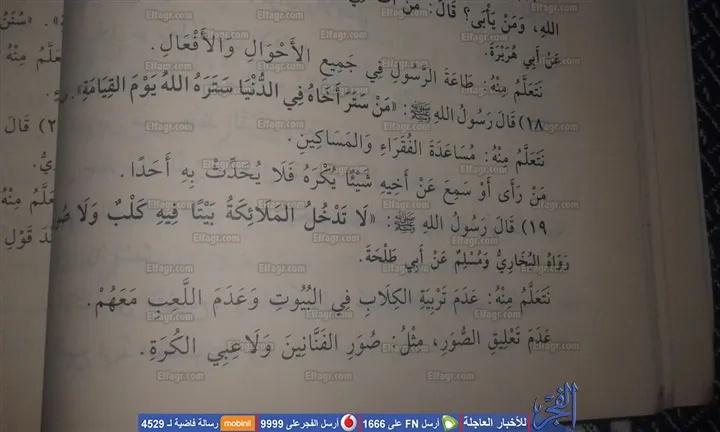 اللهِ، وَمَنْ يَأْبَى؟ قَالَ: مَنْ
عَنْ أَبِي هُرَيْرَةَ.
نَتَعَلَّمُ مِنْهُ: طَاعَةَ الرَّسُولِ فِي جَمِيعِ الأَحْوَالِ وَالأَفْعَالِ.
١٨) قَالَ رَسُولُ اللهِ ﷺ: «مَنْ سَتَرَ أَخَاهُ فِي الدُّنْيَا سَتَرَهُ اللهُ يَوْمَ القِيَامَةِ».
نَتَعَلَّمُ مِنْهُ: مُسَاعَدَةَ الفُقَرَاءِ وَالمَسَاكِينِ.
مَنْ رَأَى أَوْ سَمِعَ عَنْ أَخِيهِ شَيْئًا يُكْرَهُ فَلَا يُحَدِّثْ بِهِ أَحَدًا.
١٩) قَالَ رَسُولُ اللهِ ﷺ: «لَا تَدْخُلُ المَلَائِكَةُ بَيْتًا فِيهِ كَلْبٌ وَلَا
رَوَاهُ البُخَارِيُّ وَمُسْلِمٌ عَنْ أَبِي طَلْحَةَ.
نَتَعَلَّمُ مِنْهُ: عَدَمَ تَرْبِيَةِ الكِلَابِ فِي البُيُوتِ وَعَدَمَ اللَّعِبِ مَعَهُمْ.
عَدَمَ تَعْلِيقِ الصُّوَرِ، مِثْلُ: صُوَرِ الفَنَّانِينَ وَلَاعِبِي الكُرَةِ.
الفجر للأخبار العاجلة أرسل FN على 1666 أرسل الفجر على 9999 mobinil رسالة فاضية لـ 4529
Elfagr.com